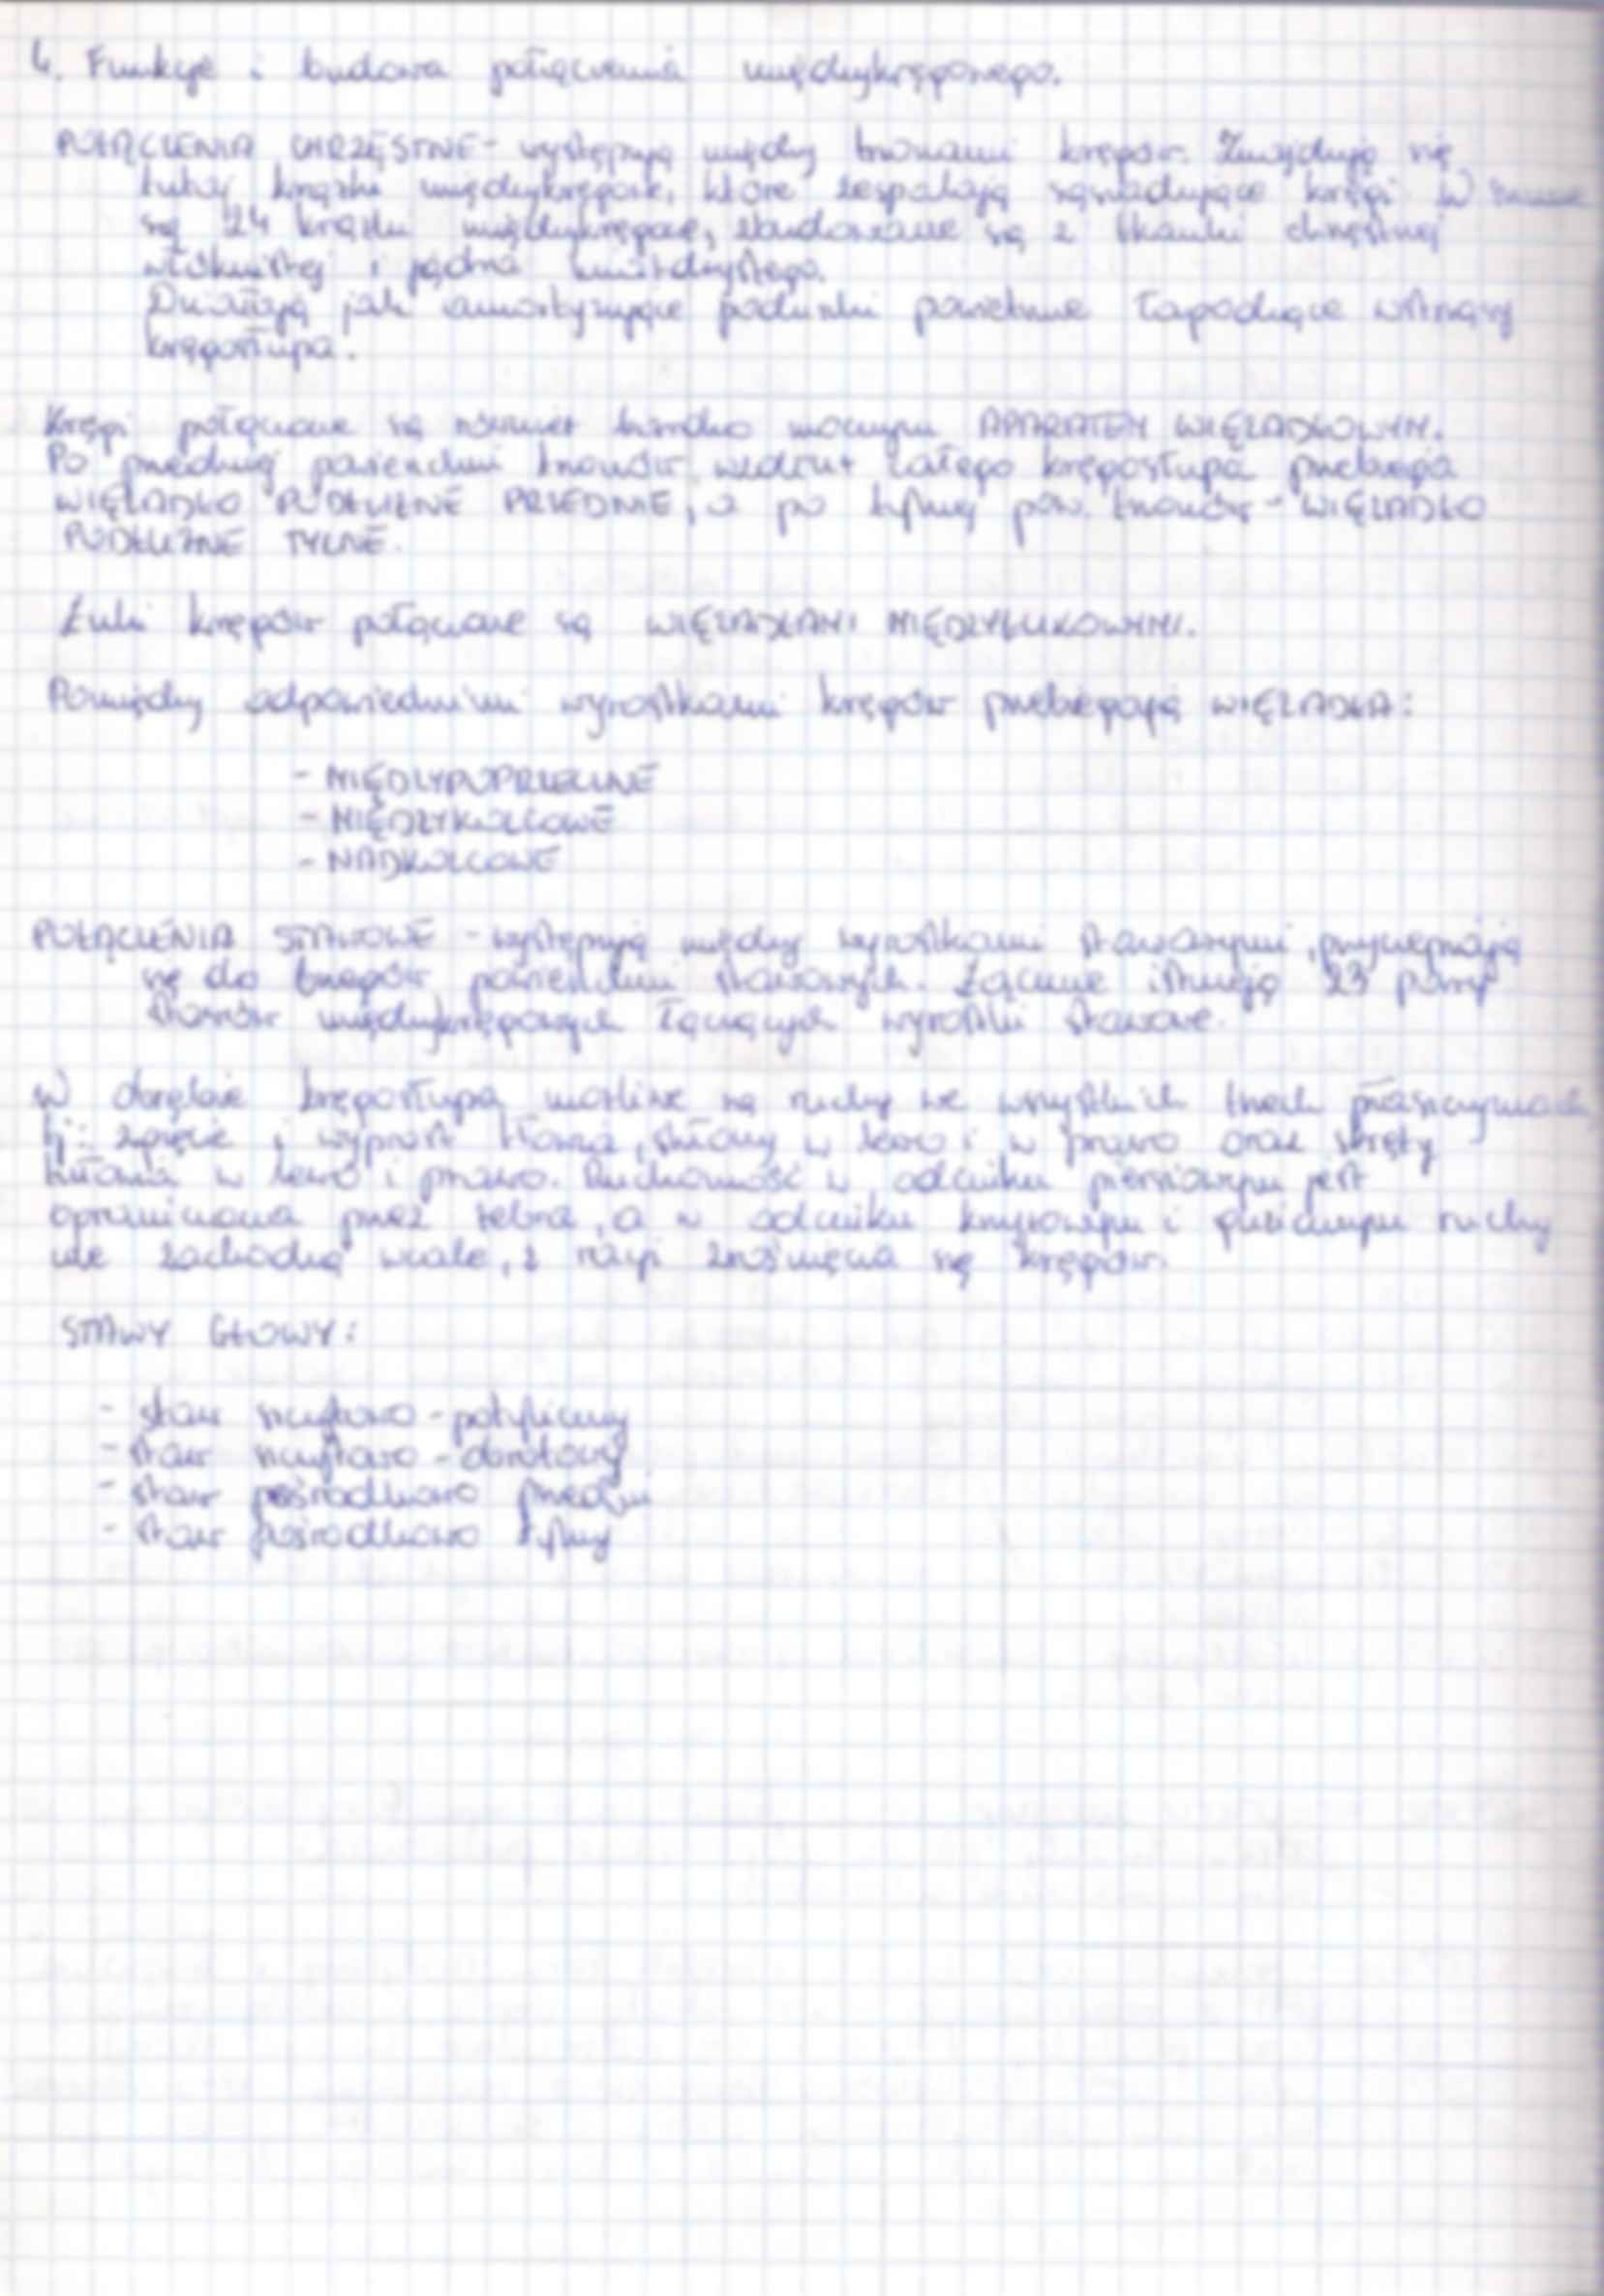 4. Funkcje i budowa połączenia międzykręgowego.
POŁĄCZENIA CHRZĘSTNE - występują między trzonami kręgów. Znajdują się
tutaj krążki międzykręgowe, które zespalają sąsiadujące kręgi. W sumie
są 24 krążki międzykręgowe, zbudowane są z tkanki chrzęstnej
włóknistej i jądra miażdżystego.
Działają jak amortyzujące poduszki powietrzne łagodzące wstrząsy
kręgosłupa.
Kręgi połączone są również bardzo mocnym APARATEM WIĘZADŁOWYM.
Po przedniej powierzchni trzonów wzdłuż całego kręgosłupa przebiega
WIĘZADŁO PODŁUŻNE PRZEDNIE, a po tylnej pow. trzonów - WIĘZADŁO
PODŁUŻNE TYLNE.
Łuki kręgów połączone są WIĘZADŁAMI MIĘDZYŁUKOWYMI.
Pomiędzy odpowiednimi wyrostkami kręgów przebiegają WIĘZADŁA:
- MIĘDZYPOPRZECZNE
- MIĘDZYKOLCOWE
- NADKOLCOWE
POŁĄCZENIA STAWOWE - występują między wyrostkami stawowymi, przyczepiają
się do brzegów powierzchni stawowych. Łącznie istnieją 23 pary
stawów międzykręgowych łączących wyrostki stawowe.
W obrębie kręgosłupa możliwe są ruchy we wszystkich trzech płaszczyznach,
tj: zgięcie i wyprost tłowia, skłony w lewo i w prawo oraz skręty
tułowia w lewo i prawo. Ruchomość w odcinku piersiowym jest
ograniczona przez żebra, a w odcinku krzyżowym i guzicznym ruchy
nie zachodzą wcale, z racji zrośnięcia się kręgów.
STAWY GŁOWY:
- staw szczytowo - potyliczny
- staw szczytowo - obrotowy
- staw pośrodkowo przedni
- staw pośrodkowo tylny